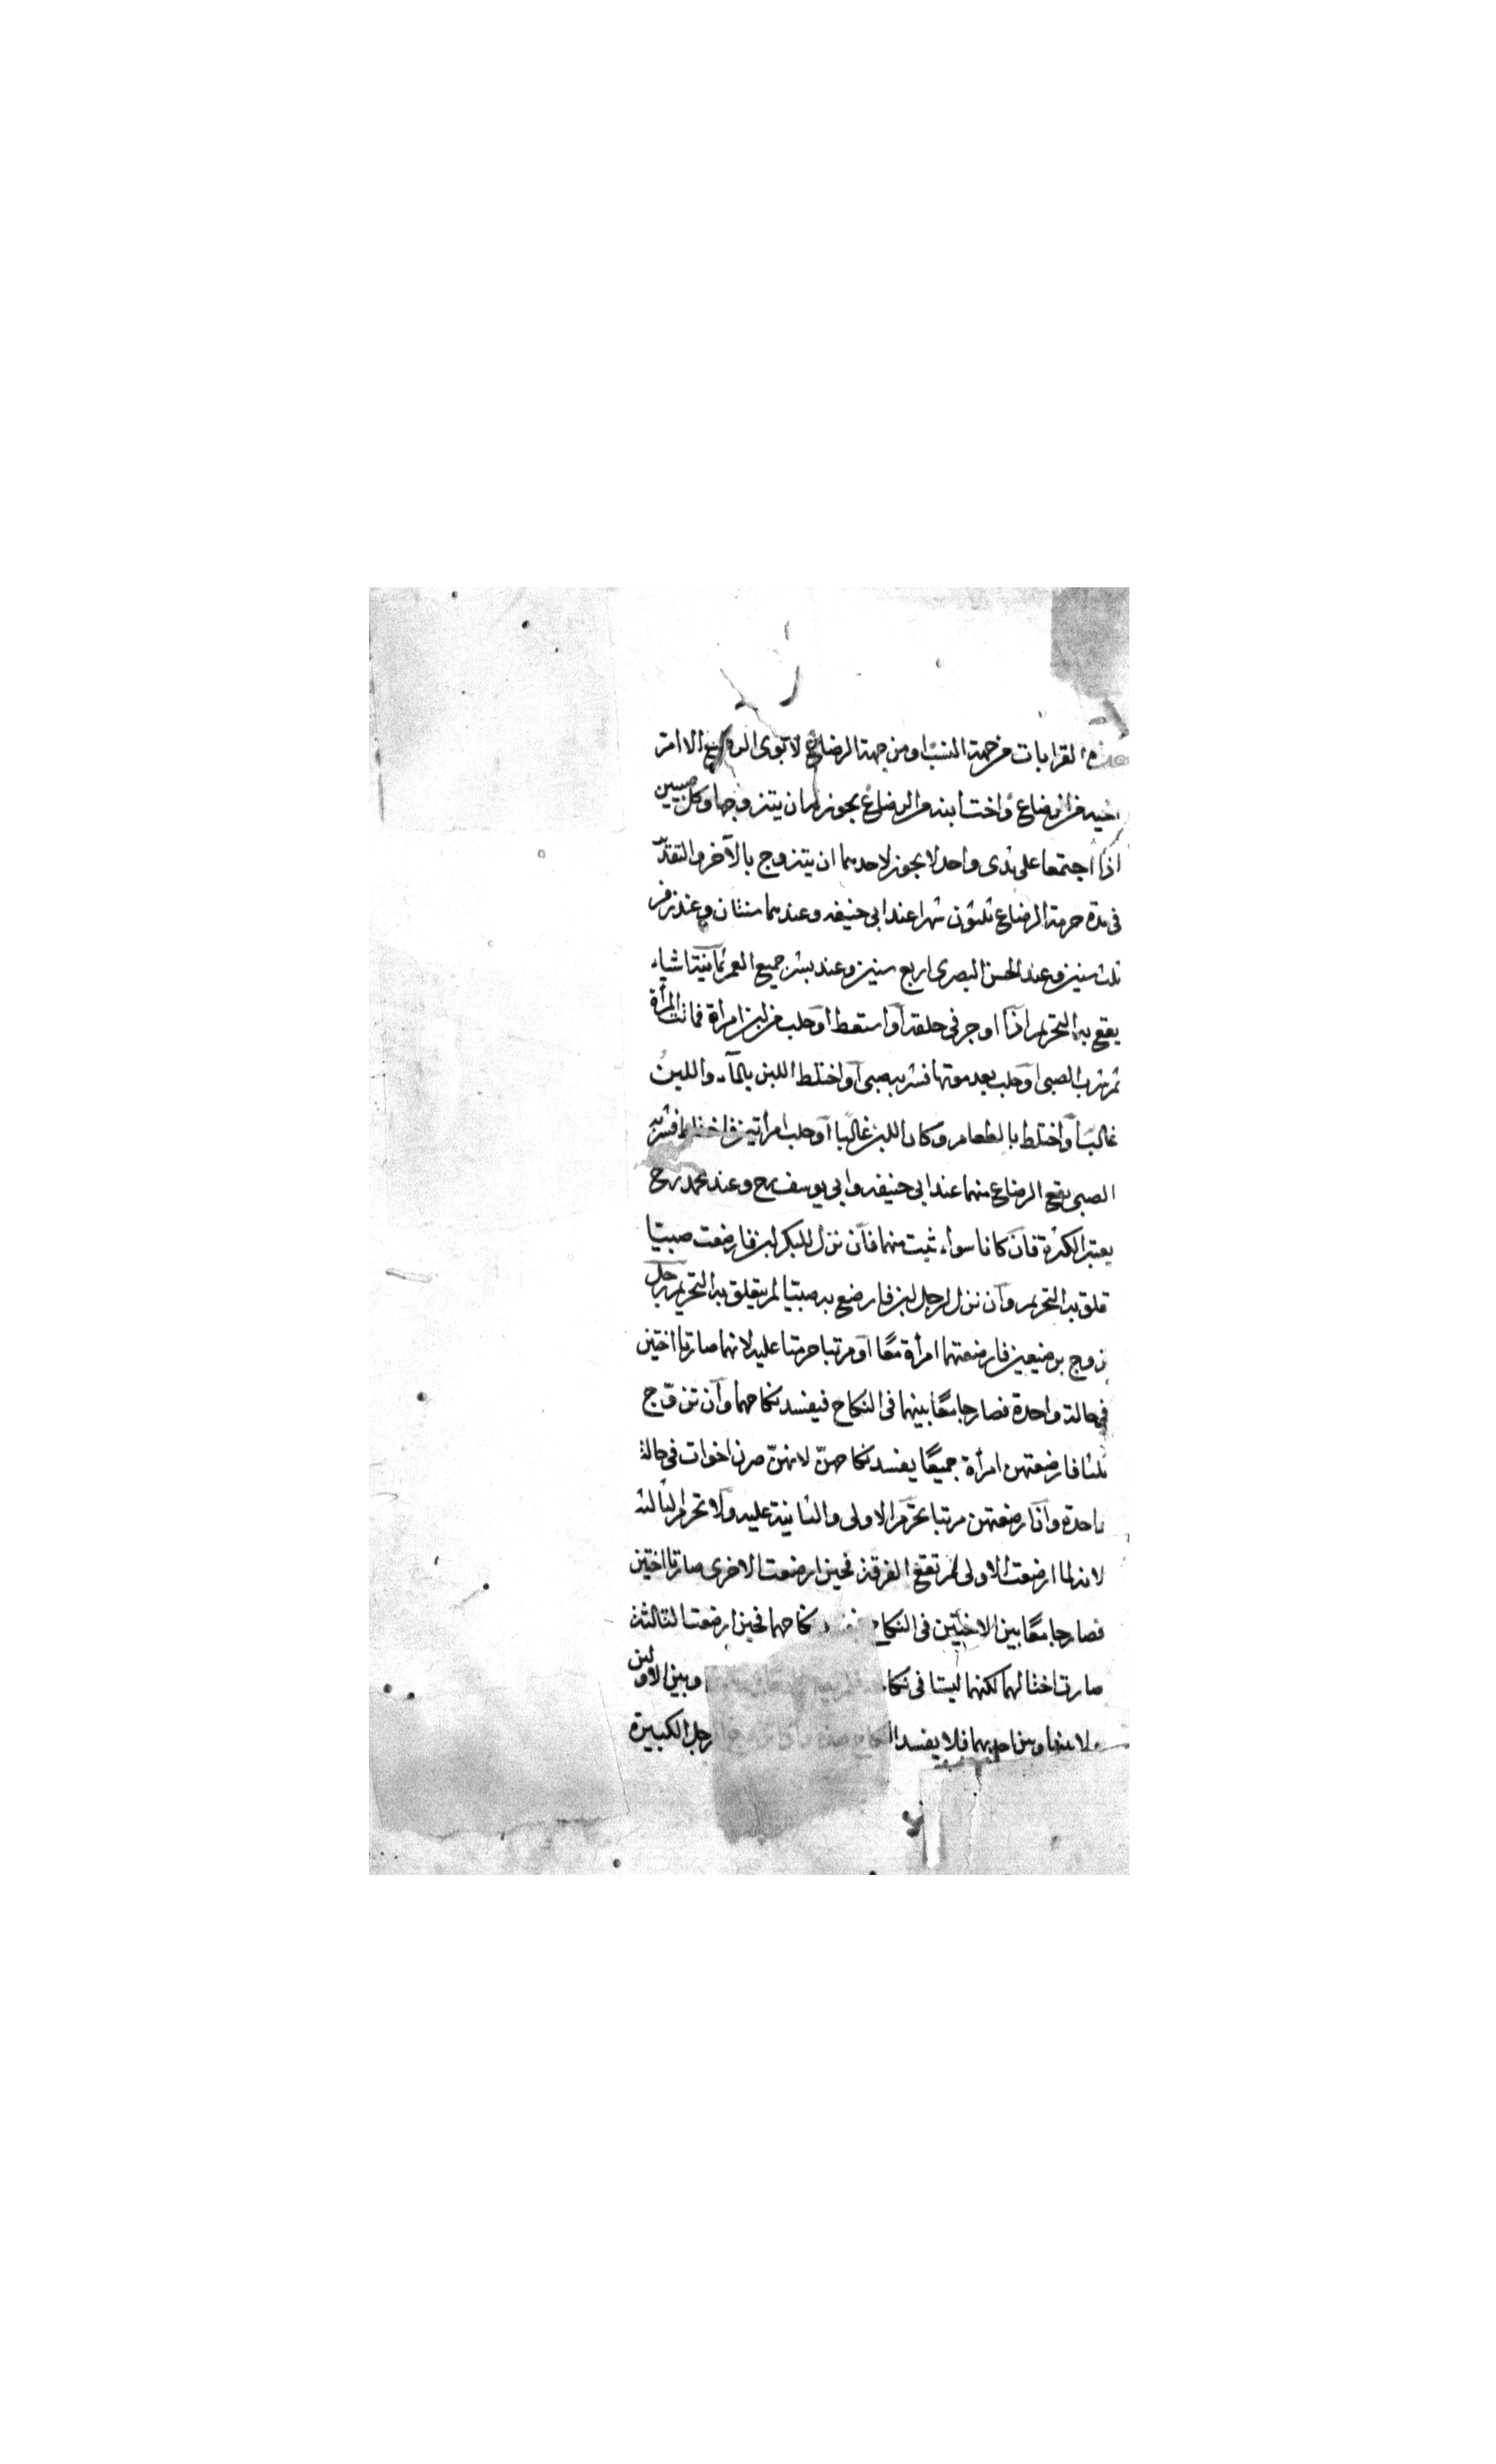 القرابات من جهة النسب او من جهة الرضاع لا الا ام
اخيه من الرضاع واخت ابنه من الرضاع يجوز له ان يتزوجها وكل صبيين
اذا اجتمعا على ثدى واحد لا يجوز لاحدهما ان يتزوج بالآخر والتقدير
فى مدة حرمة الرضاع ثلثون شهرا عند ابى حنيفه وعندهما سنتان وعند زفر
ثلث سنين وعند الحسن البصرى اربع سنين وعند بشر جميع العمر ثمانية اشياء
يقع به التحريم اذا اوجر فى حلقه او استعط او حلب من لبن امرأة فماتت المرأة
ثم شرب الصبى او حلب بعد موتها فشربه صبى او اختلط اللبن بالمآء واللبن
غالبا او اختلط بالطعام وكان اللبن غالبا او حلب امرأتين فاختلط فشربه
الصبى يقع الرضاع منهما عند ابى حنيفه وابى يوسف رح وعند محمد رح
يعتبر الكثرة فان كانا سواء ثبت منهما فان نزل للبكر لبن فارضعت صبيا
تعلق به التحريم وان نزل لرجل لبن فارضع به صبيا لم يتعلق به التحريم رجل
زوج برضيعين فارضعتهما امرأة معا او مرتبا حرمتا عليه لانهما صارتا اختين
فى حالة واحدة فصار جامعا بينهما فى النكاح فيفسد نكاحهما وان تزوّج
ثلثا فارضعتهن امرأة جميعا يفسد نكاحهنّ لانهنّ صرن اخوات فى حالة
واحدة واذا ارضعتهن مرتبا تحرم الاولى والثانية عليه ولا تحرم الثالثة
لانه لما ارضعت الاولى لم تقع الفرقة فحين ارضعت الاخرى صارتا اختين
فصار جامعا بين الاختين فى النكاح نكاحهما فحين ارضعت الثالثة
صارت اختا لهما لكنهما ليستا فى وبين الاولين
ولا بينها وبين احديهما فلا يفسد رجل الكبيرة